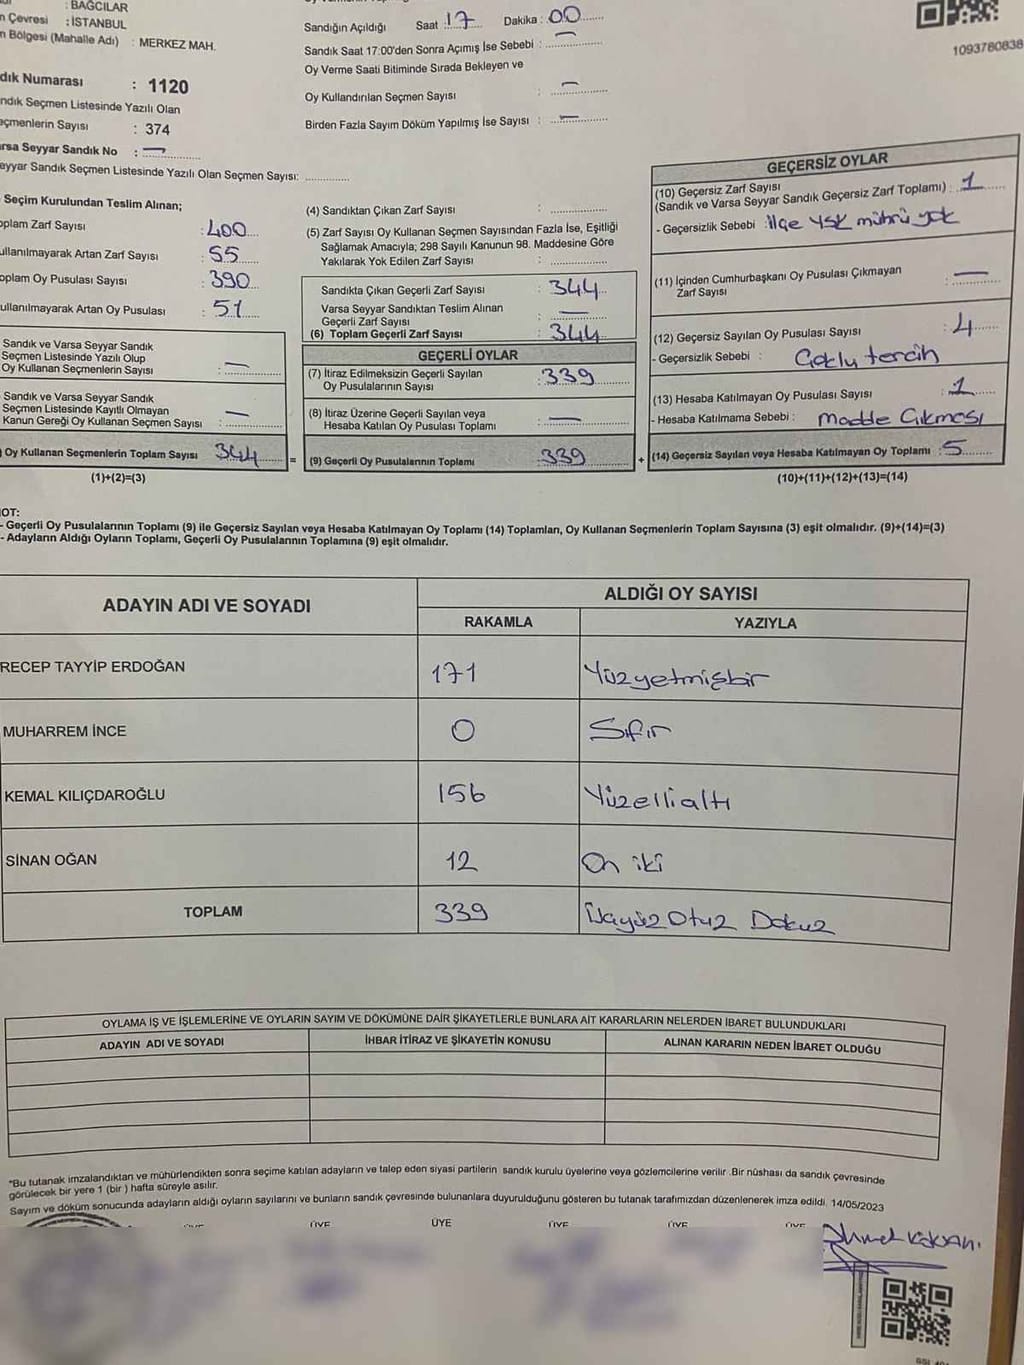 : BAĞCILAR
n Çevresi : İSTANBUL
n Bölgesi (Mahalle Adı) : MERKEZ MAH.
dık Numarası : 1120
ndık Seçmen Listesinde Yazılı Olan
eçmenlerin Sayısı : 374
arsa Seyyar Sandık No : —
eyyar Sandık Seçmen Listesinde Yazılı Olan Seçmen Sayısı: ............
Sandığın Açıldığı Saat : 17 Dakika : 00
Sandık Saat 17:00'den Sonra Açımış İse Sebebi : —
Oy Verme Saati Bitiminde Sırada Bekleyen ve
Oy Kullandırılan Seçmen Sayısı : —
Birden Fazla Sayım Döküm Yapılmış İse Sayısı : —
1093780838
Seçim Kurulundan Teslim Alınan;
oplam Zarf Sayısı : 400
ullanılmayarak Artan Zarf Sayısı : 55
oplam Oy Pusulası Sayısı : 390
ullanılmayarak Artan Oy Pusulası : 51
Sandık ve Varsa Seyyar Sandık
Seçmen Listesinde Yazılı Olup
Oy Kullanan Seçmenlerin Sayısı : —
Sandık ve Varsa Seyyar Sandık
Seçmen Listesinde Kayıtlı Olmayan
Kanun Gereği Oy Kullanan Seçmen Sayısı : —
) Oy Kullanan Seçmenlerin Toplam Sayısı 344 =
(1)+(2)=(3)
(4) Sandıktan Çıkan Zarf Sayısı : ............
(5) Zarf Sayısı Oy Kullanan Seçmen Sayısından Fazla İse, Eşitliği
Sağlamak Amacıyla; 298 Sayılı Kanunun 98. Maddesine Göre
Yakılarak Yok Edilen Zarf Sayısı : ............
Sandıkta Çıkan Geçerli Zarf Sayısı : 344
Varsa Seyyar Sandıktan Teslim Alınan
Geçerli Zarf Sayısı : —
(6) Toplam Geçerli Zarf Sayısı : 344
GEÇERLİ OYLAR
(7) İtiraz Edilmeksizin Geçerli Sayılan
Oy Pusulalarının Sayısı : 339
(8) İtiraz Üzerine Geçerli Sayılan veya
Hesaba Katılan Oy Pusulası Toplamı : —
(9) Geçerli Oy Pusulalarının Toplamı 339 +
GEÇERSİZ OYLAR
(10) Geçersiz Zarf Sayısı
(Sandık ve Varsa Seyyar Sandık Geçersiz Zarf Toplamı) : 1
- Geçersizlik Sebebi : İlçe YSK mührü yok
(11) İçinden Cumhurbaşkanı Oy Pusulası Çıkmayan
Zarf Sayısı : —
(12) Geçersiz Sayılan Oy Pusulası Sayısı : 4
- Geçersizlik Sebebi : Çoklu tercih
(13) Hesaba Katılmayan Oy Pusulası Sayısı : 1
- Hesaba Katılmama Sebebi : Madde Çıkması
(14) Geçersiz Sayılan veya Hesaba Katılmayan Oy Toplamı : 5
(10)+(11)+(12)+(13)=(14)
OT:
- Geçerli Oy Pusulalarının Toplamı (9) ile Geçersiz Sayılan veya Hesaba Katılmayan Oy Toplamı (14) Toplamları, Oy Kullanan Seçmenlerin Toplam Sayısına (3) eşit olmalıdır. (9)+(14)=(3)
- Adayların Aldığı Oyların Toplamı, Geçerli Oy Pusulalarının Toplamına (9) eşit olmalıdır.
ADAYIN ADI VE SOYADI ALDIĞI OY SAYISI
RAKAMLA YAZIYLA
RECEP TAYYİP ERDOĞAN 171 Yüzyetmişbir
MUHARREM İNCE 0 Sıfır
KEMAL KILIÇDAROĞLU 156 Yüzellialtı
SİNAN OĞAN 12 On iki
TOPLAM 339 Üçyüz Otuz Dokuz
OYLAMA İŞ VE İŞLEMLERİNE VE OYLARIN SAYIM VE DÖKÜMÜNE DAİR ŞİKAYETLERLE BUNLARA AİT KARARLARIN NELERDEN İBARET BULUNDUKLARI
ADAYIN ADI VE SOYADI İHBAR İTİRAZ VE ŞİKAYETİN KONUSU ALINAN KARARIN NEDEN İBARET OLDUĞU
*Bu tutanak imzalandıktan ve mühürlendikten sonra seçime katılan adayların ve talep eden siyasi partilerin sandık kurulu üyelerine veya gözlemcilerine verilir .Bir nüshası da sandık çevresinde
görülecek bir yere 1 (bir ) hafta süreyle asılır.
Sayım ve döküm sonucunda adayların aldığı oyların sayılarını ve bunların sandık çevresinde bulunanlara duyurulduğunu gösteren bu tutanak tarafımızdan düzenlenerek imza edildi. 14/05/2023
ÜYE ÜYE ÜYE ÜYE ÜYE ÜYE